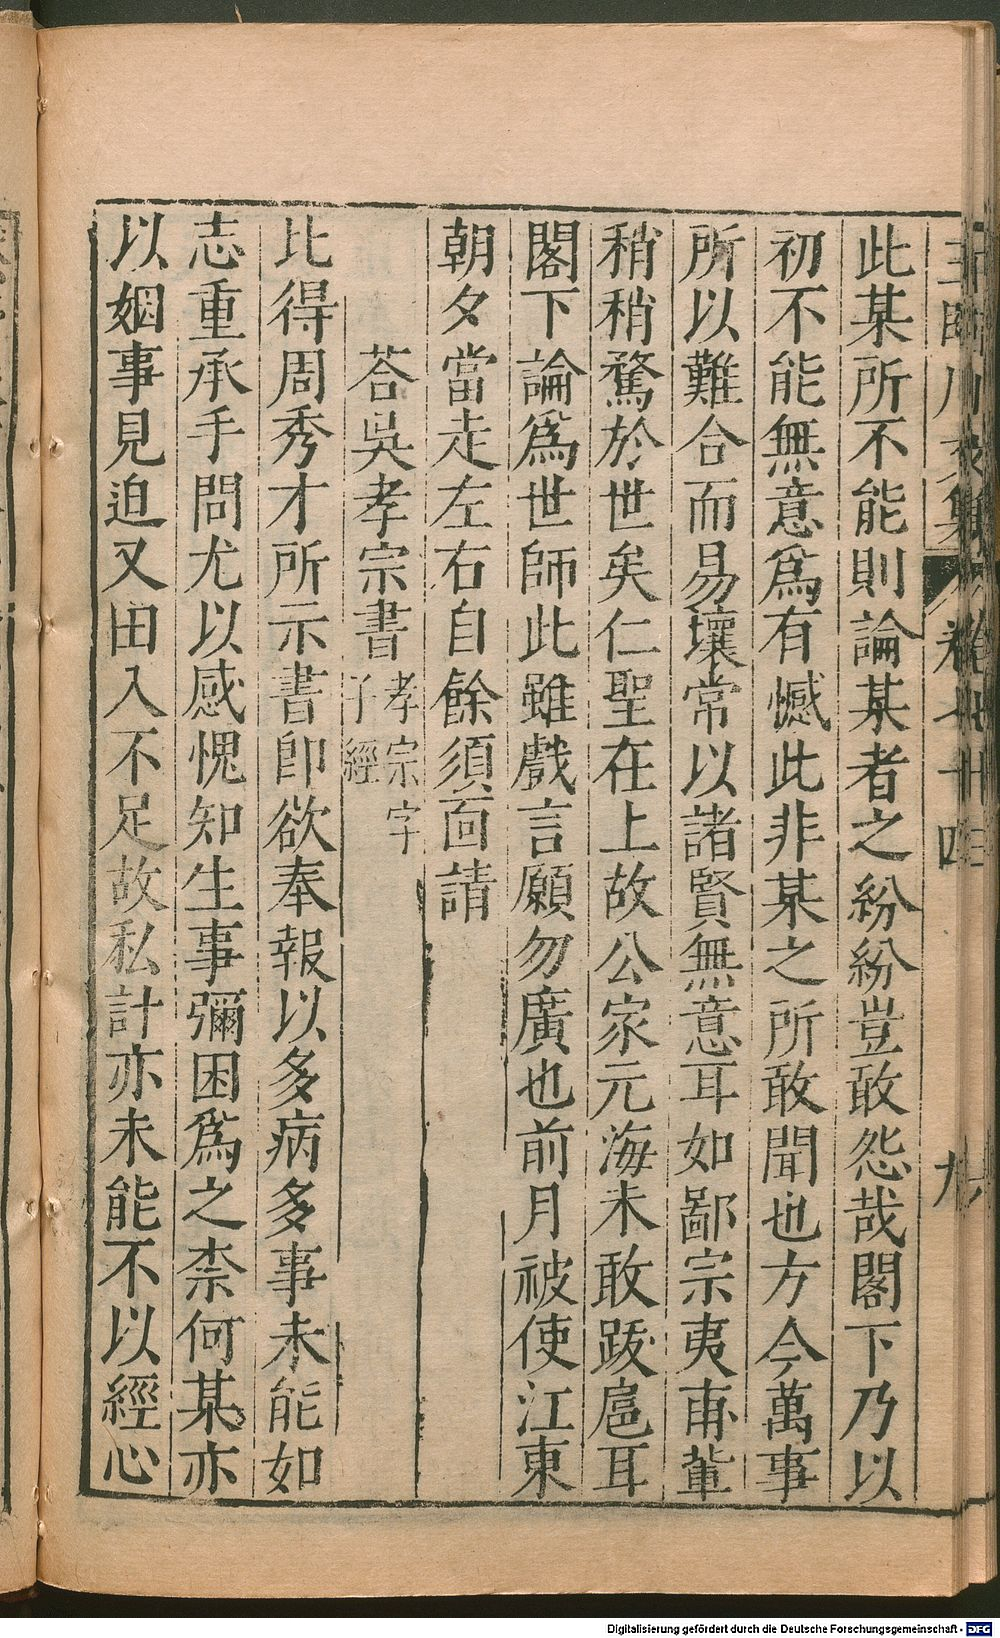 此某所不能則論某者之紛紛豈敢怨哉閣下乃以
初不能無意為有憾此非某之所敢聞也方今萬事
所以難合而易壞常以諸賢無意耳如鄙宗夷甫輩
稍稍騖於世矣仁聖在上故公家元海未敢跋扈耳
閣下論為世師此雖戲言願勿廣也前月被使江東
朝夕當走左右自餘須面請
荅吳孝宗書孝宗字子經
比得周秀才所示書即欲奉報以多病多事未能如
志重承手問尤以感愧知生事彌困為之柰何某亦
以姻事見迫又田入不足故私計亦未能不以經心
Digitalisierung gefördert durch die Deutsche Forschungsgemeinschaft - DFG